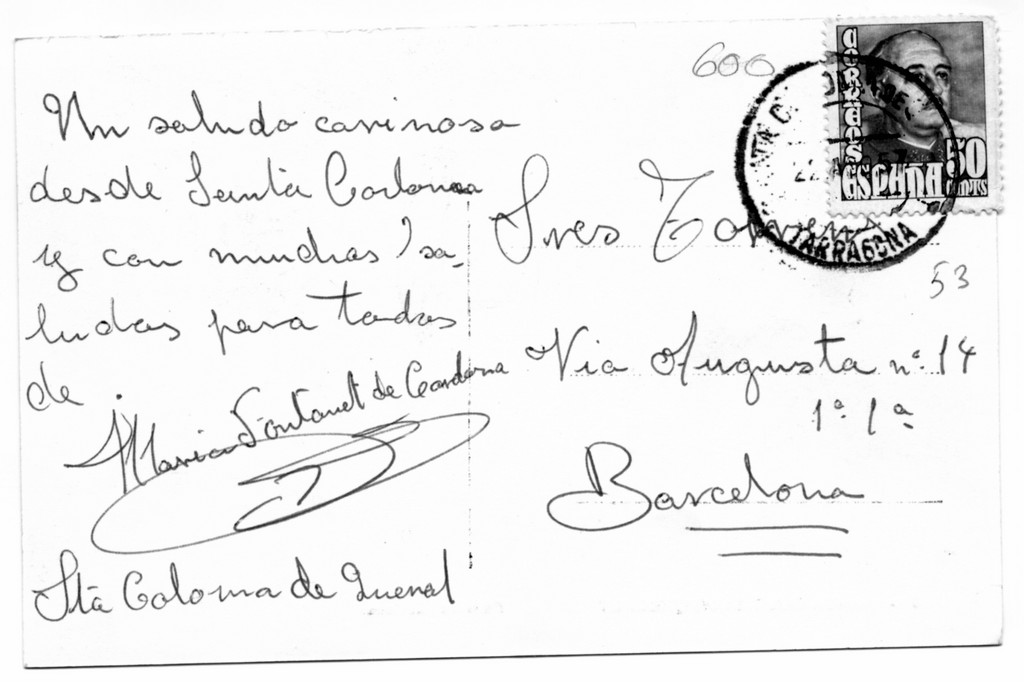 600
Un saludo carinoso
desde Santa Coloma
y con muchas sa-
ludos para todos
de
Maria Fontanet de Cardona
Stá Coloma de Queralt
Sres
Via Augusta nº 14
1ª 1ª
Barcelona
53
CORREOS
ESPAÑA
50
CENTS
TARRAGONA